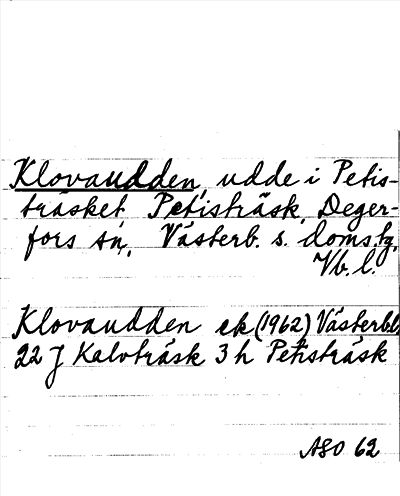 Klovaudden, udde i Petis-
träsket, Petisträsk, Deger-
fors sn, Västerb. s. doms.tg,
Vb. l.
Klovaudden ek (1962) Västerbl,
22 J Kalvträsk 3 h Petisträsk
ASO 62